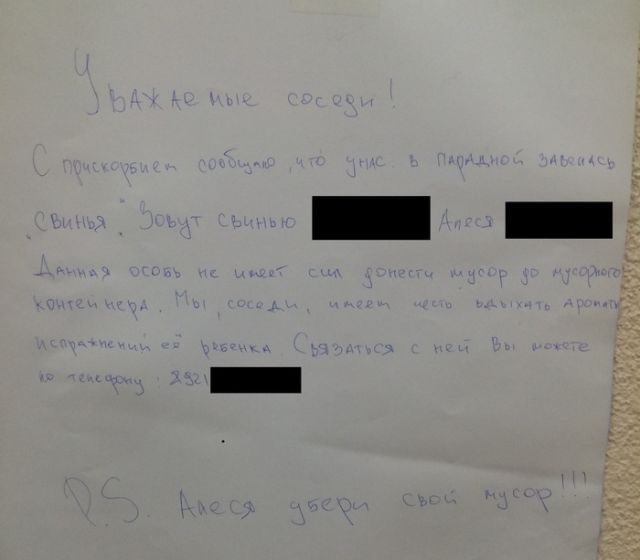 Уважаемые соседи!
С прискорбием сообщаю, что у нас в парадной завелась
"свинья". Зовут свинью Алеся
Данная особь не имеет сил донести мусор до мусорного
контейнера. Мы, соседи, имеем честь вдыхать ароматы
испражнений её ребенка. Связаться с ней Вы можете
по телефону: 8921
P.S. Алеся убери свой мусор!!!